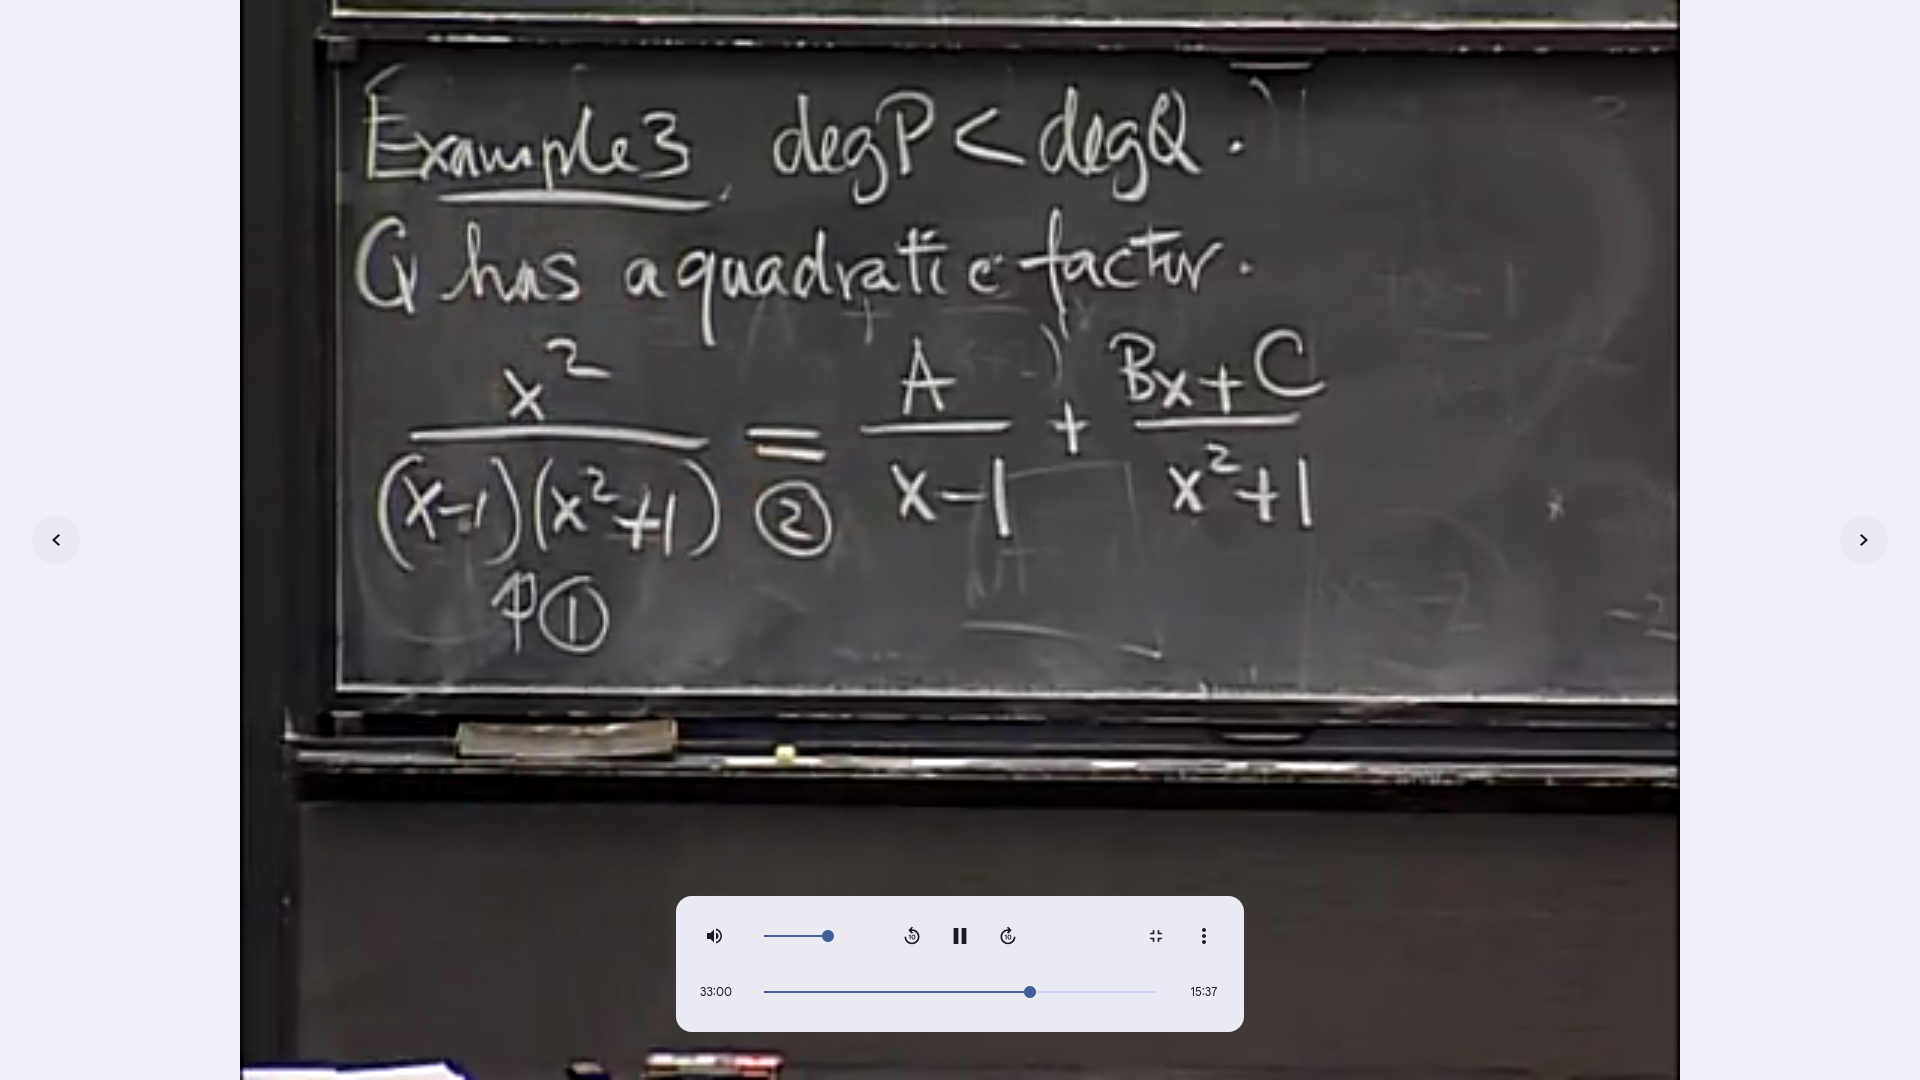 Example 3. deg P < deg Q.
Q has a quadratic factor.
x² / (x-1)(x²+1) = A / x-1 + Bx+C / x²+1
②
↑①
10
10
33:00
15:37